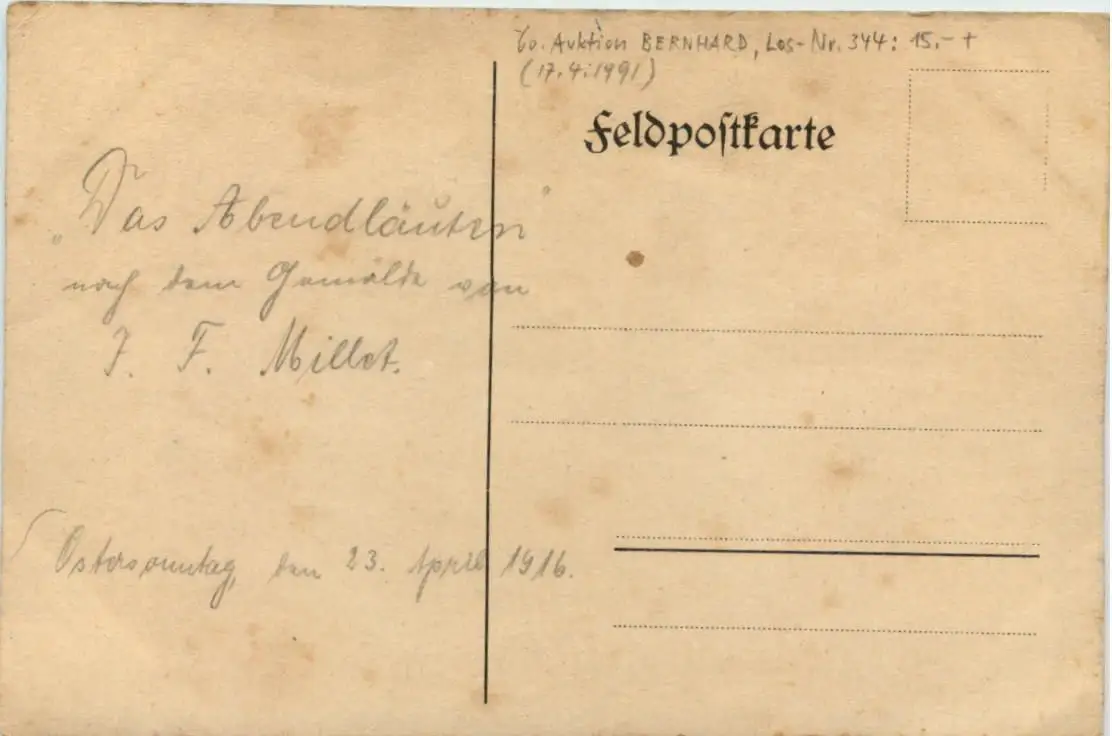 60. Auktion BERNHARD, Los-Nr. 344: 15.-+
(17.4.1991)
Feldpostkarte
„Das Abendläuten"
nach dem Gemälde von
J. F. Millet.
Ostersonntag, den 23. April 1916.